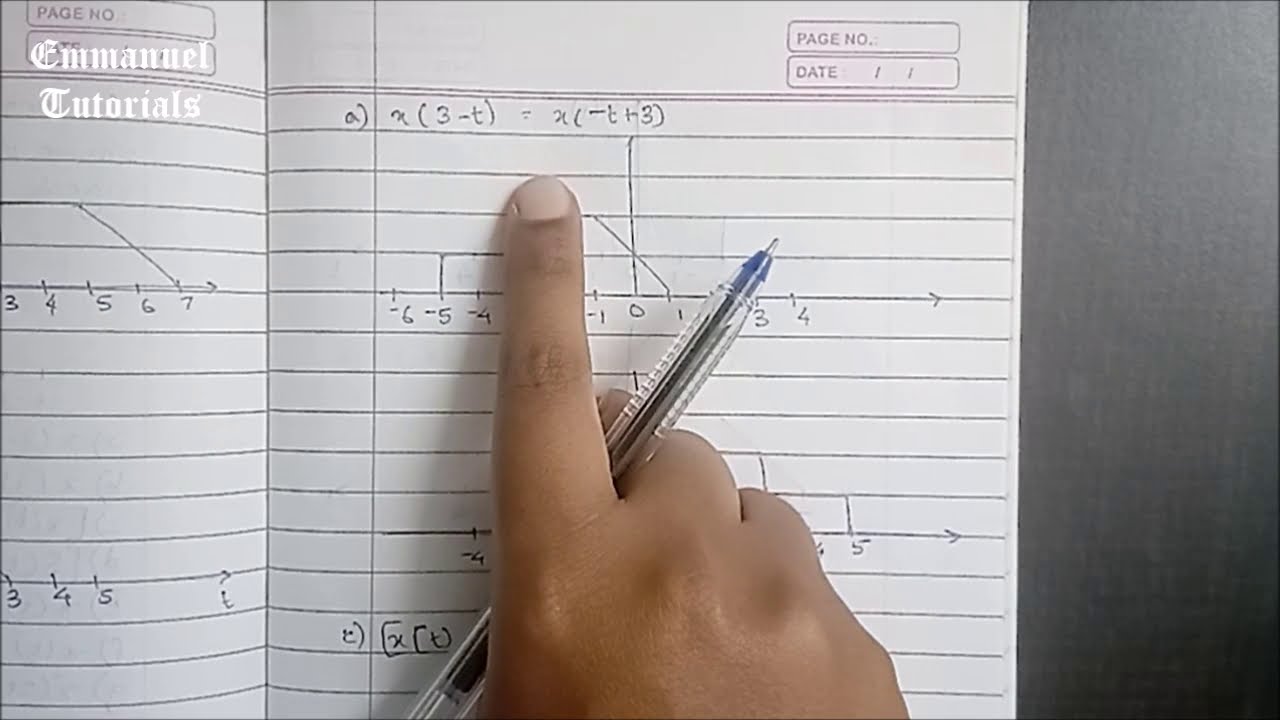 PAGE NO.
DATE
Emmanuel
Tutorials
PAGE NO.:
DATE: / /
a) x(3-t) = x(-t+3)
3 4 5 6 7
-6 -5 -4 -1 0 1 3 4
-4 5
3 4 5 t
c) [x(t)